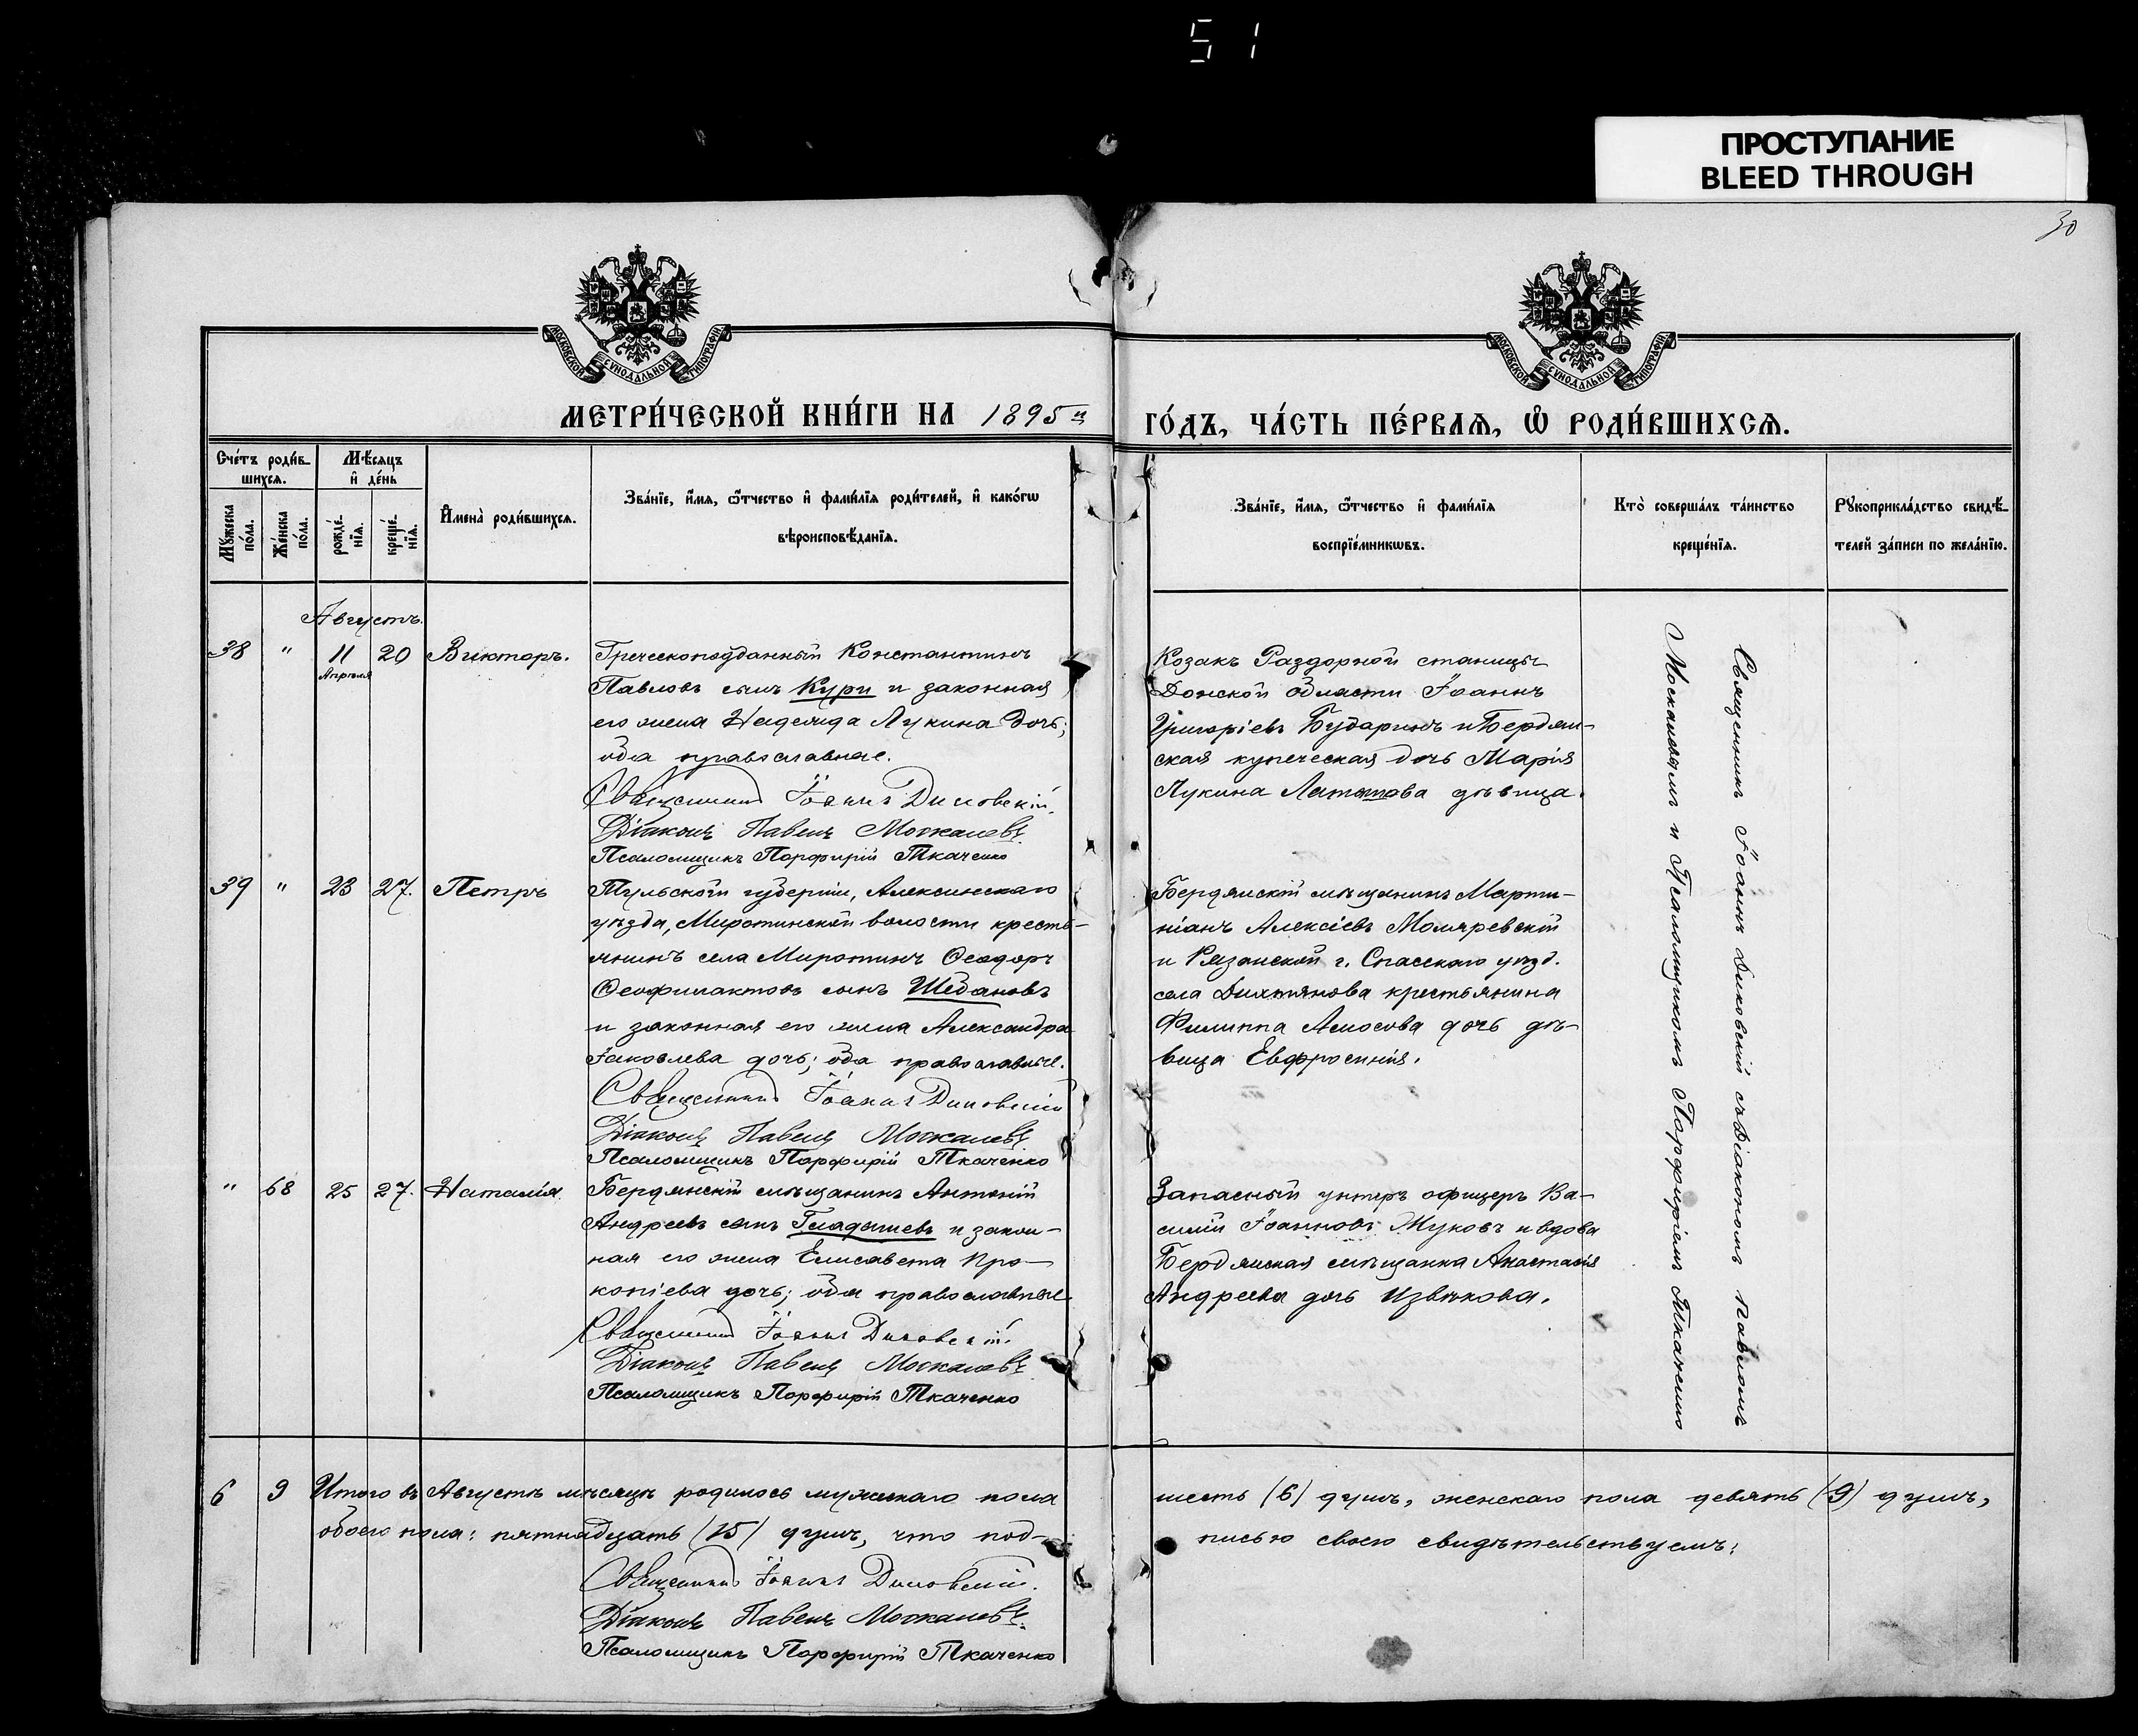 51
ПРОСТУПАНИЕ
BLEED THROUGH
30
МОСКОВСКОЙ СѴНОДАЛЬНОЙ ТИПОГРАФІИ
МОСКОВСКОЙ СѴНОДАЛЬНОЙ ТИПОГРАФІИ
МЕТРИ́ЧЕСКОЙ КНИ́ГИ НА 1895й ГО́ДЪ, ЧА́СТЬ ПЕ́РВАЯ, Ѡ РОДИ́ВШИХСЯ.
Сче́тъ роди́в-
шихся.
Мꙋ́жеска по́ла.
Же́нска по́ла.
Мѣ́сяцъ
и҆ де́нь
рожде́-
нїя.
креще́-
нїя.
И҆мена̀ роди́вшихся.
Зва́нїе, и҆́мя, ѻ҆́тчество и҆ фами́лїя роди́телей, и҆ како́гѡ
вѣроисповѣ́данїя.
Зва́нїе, и҆́мя, ѻ҆́тчество и҆ фами́лїя
воспрїе́мникѡвъ.
Кто̀ соверша́лъ та́инство
креще́нїя.
Рꙋкоприкла́дство свидѣ́-
телей за́писи по жела́нїю.
Августъ.
38 " 11 20 Викторъ.
Апрѣля
Греческоподданный Константинъ
Павловъ сынъ Кури и законная
его жена Надежда Лукина дочь;
оба православные.
Священникъ Іоаннъ Диковскій.
Діаконъ Павелъ Москалевъ
Псаломщикъ Порфирій Ткаченко
Козакъ Раздорной станицы
Донской области Іоаннъ
Григоріевъ Бударинъ и Бердян-
ская купеческая дочь Марія
Лукина девица.
39 " 23 27. Петръ
Тульской губерніи, Алексинскаго
уѣзда, Миротинской волости кресть-
янинъ села Миротинъ Ѳеодоръ
Ѳеофилактовъ сынъ Шебановъ
и законная его жена Александра
Іаковлева дочь; оба православные.
Священникъ Іоаннъ Диковскій
Діаконъ Павелъ Москалевъ
Псаломщикъ Порфирій Ткаченко
Бердянскій мѣщанинъ Марти-
ніанъ Алексіевъ Моляревскій
и Рязанской г. Спасскаго уѣзд.
села крестьянина
Филиппа Амосова дочь дѣ-
вица Евфросинія.
" 68 25 27. Наталія.
Бердянскій мѣщанинъ Антоній
Андреевъ сынъ Гладышевъ и закон-
ная его жена Елисавета Про-
копіева дочь; оба православные
Священникъ Іоаннъ Диковскій.
Діаконъ Павелъ Москалевъ
Псаломщикъ Порфирій Ткаченко
Запасный унтеръ офицеръ Ва-
силій Іоанновъ Жуковъ и вдова
Бердянская мѣщанка Анастасія
Андреева дочь Извѣкова.
Священникъ Іоаннъ Диковскій съ Діакономъ Павломъ
Москалевымъ и Псаломщикомъ Порфиріемъ Ткаченко
6 9 Итого въ Августѣ мѣсяцѣ родилось мужскаго пола шесть (6) душъ, женскаго пола девять (9) душъ,
обоего пола: пятнадцать (15) душъ, что под- писью своею свидѣтельствуемъ:
Священникъ Іоаннъ Диковскій.
Діаконъ Павелъ Москалевъ.
Псаломщикъ Порфирій Ткаченко